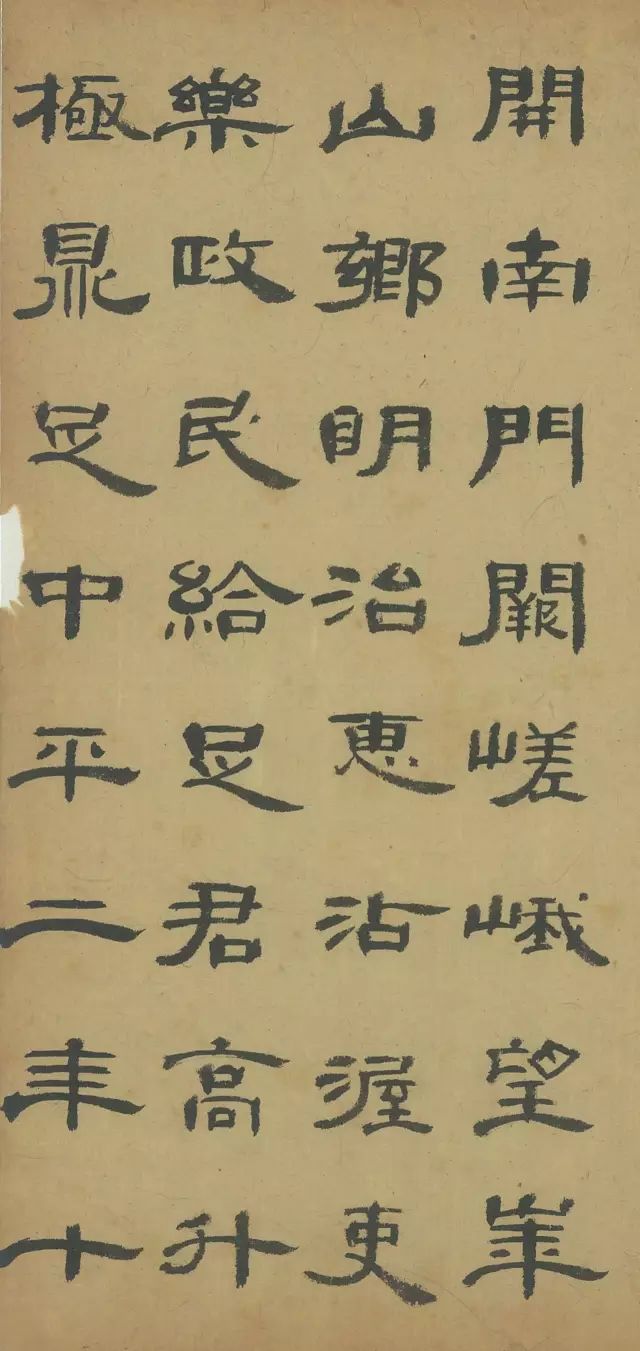 開南門闕嵯峨望崋
山鄉明治惠沾渥吏
樂政民給足君高升
極鼎足中平二年十